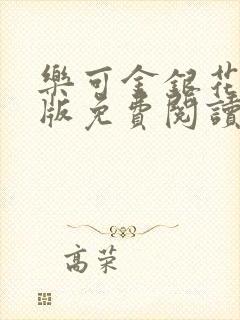 樂可金銀花
版免費閱讀
高荣